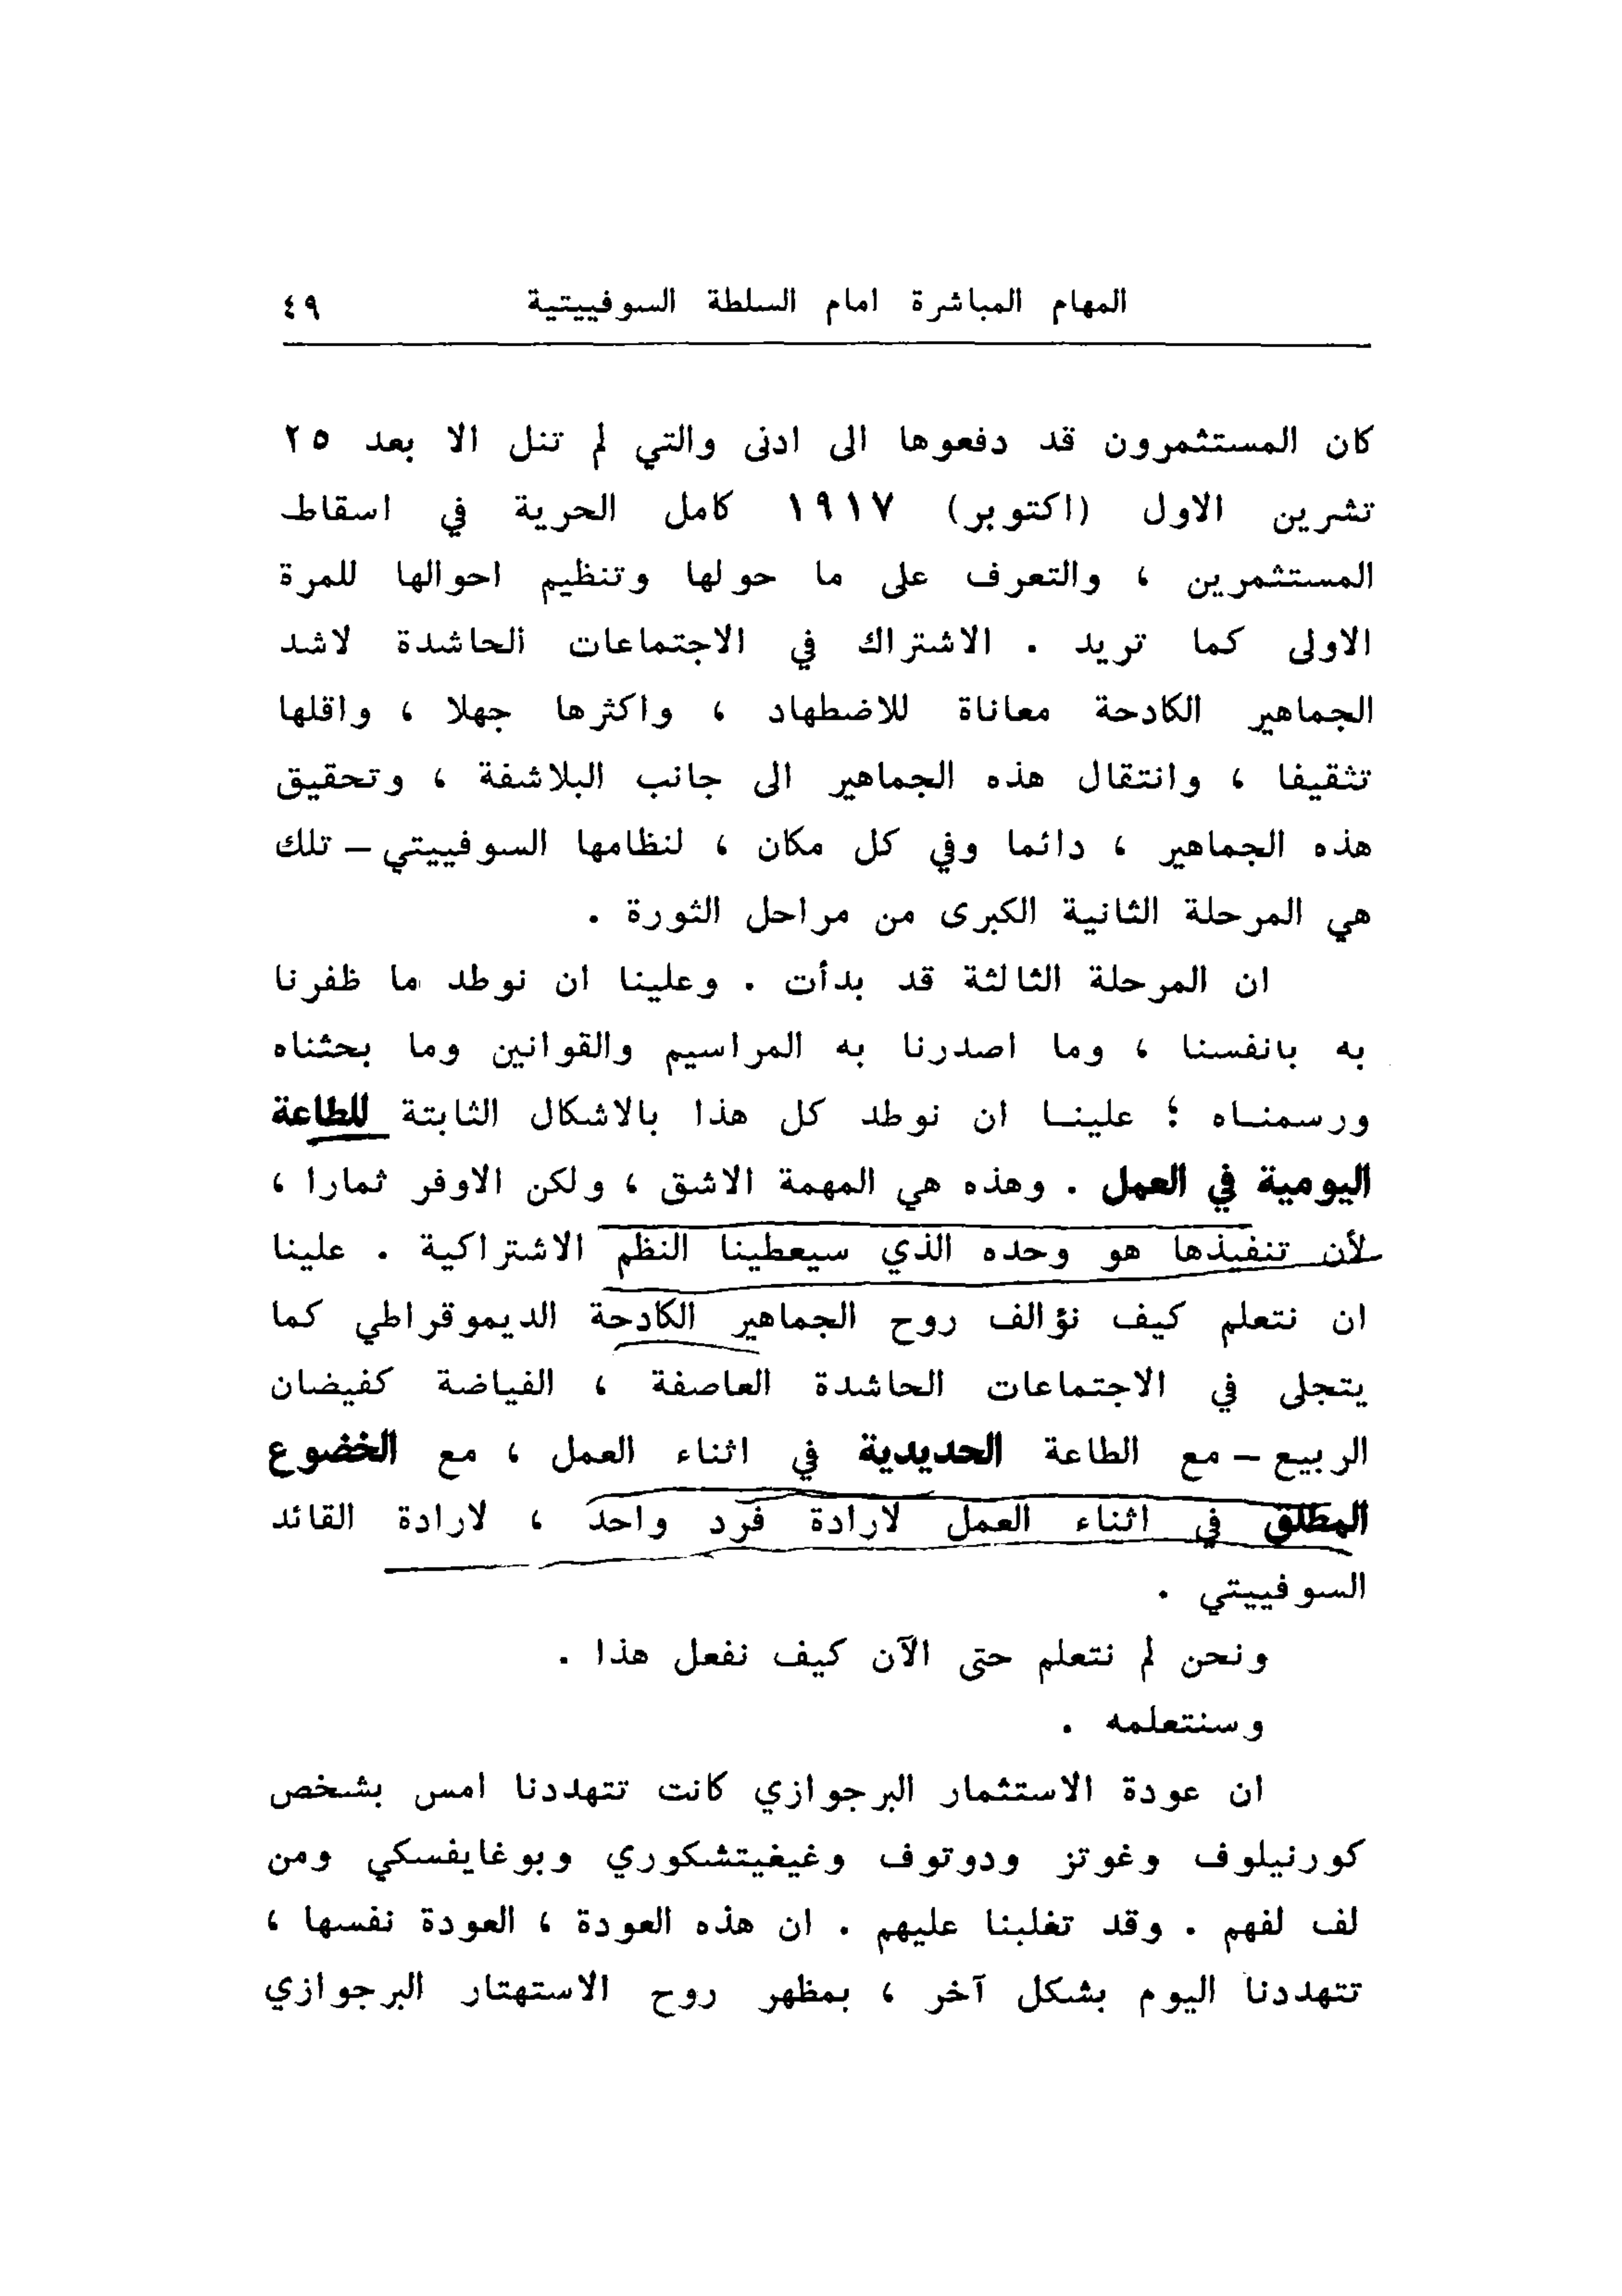 المهام المباشرة امام السلطة السوفييتية ٤٩
كان المستثمرون قد دفعوها الى ادنى والتي لم تنل الا بعد ٢٥
تشرين الاول (اكتوبر) ١٩١٧ كامل الحرية في اسقاط
المستثمرين ، والتعرف على ما حولها وتنظيم احوالها للمرة
الاولى كما تريد . الاشتراك في الاجتماعات الحاشدة لاشد
الجماهير الكادحة معاناة للاضطهاد ، واكثرها جهلا ، واقلها
تثقيفا ، وانتقال هذه الجماهير الى جانب البلاشفة ، وتحقيق
هذه الجماهير ، دائما وفي كل مكان ، لنظامها السوفييتي – تلك
هي المرحلة الثانية الكبرى من مراحل الثورة .
ان المرحلة الثالثة قد بدأت . وعلينا ان نوطد ما ظفرنا
به بانفسنا ، وما اصدرنا به المراسيم والقوانين وما بحثناه
ورسمنـاه ؛ علينـا ان نوطد كل هذا بالاشكال الثابتة للطاعة
اليومية في العمل . وهذه هي المهمة الاشق ، ولكن الاوفر ثمارا ،
لأن تنفيذها هو وحده الذي سيعطينا النظم الاشتراكية . علينا
ان نتعلم كيف نؤالف روح الجماهير الكادحة الديموقراطي كما
يتجلى في الاجتماعات الحاشدة العاصفة ، الفياضة كفيضان
الربيع – مع الطاعة الحديدية في اثناء العمل ، مع الخضوع
المطلق في اثناء العمل لارادة فرد واحد ، لارادة القائد
السوفييتي .
ونحن لم نتعلم حتى الآن كيف نفعل هذا .
وسنتعلمه .
ان عودة الاستثمار البرجوازي كانت تتهددنا امس بشخص
كورنيلوف وغوتز ودوتوف وغيغيتشكوري وبوغايفسكي ومن
لف لفهم . وقد تغلبنا عليهم . ان هذه العودة ، العودة نفسها ،
تتهددنا اليوم بشكل آخر ، بمظهر روح الاستهتار البرجوازي